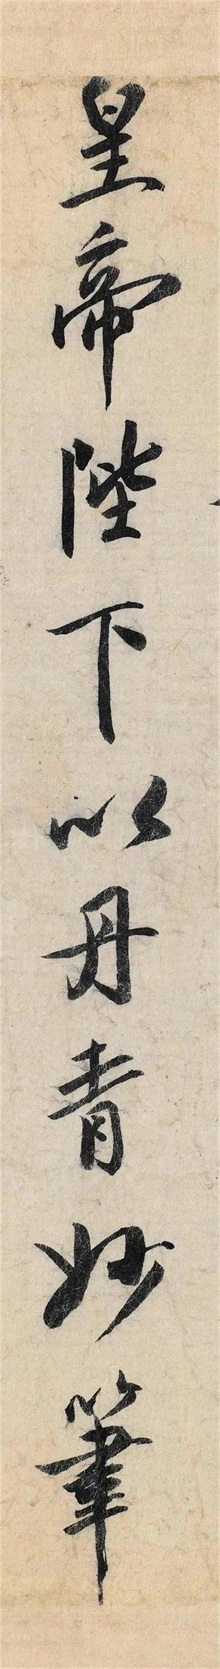 皇帝陛下以丹青妙筆